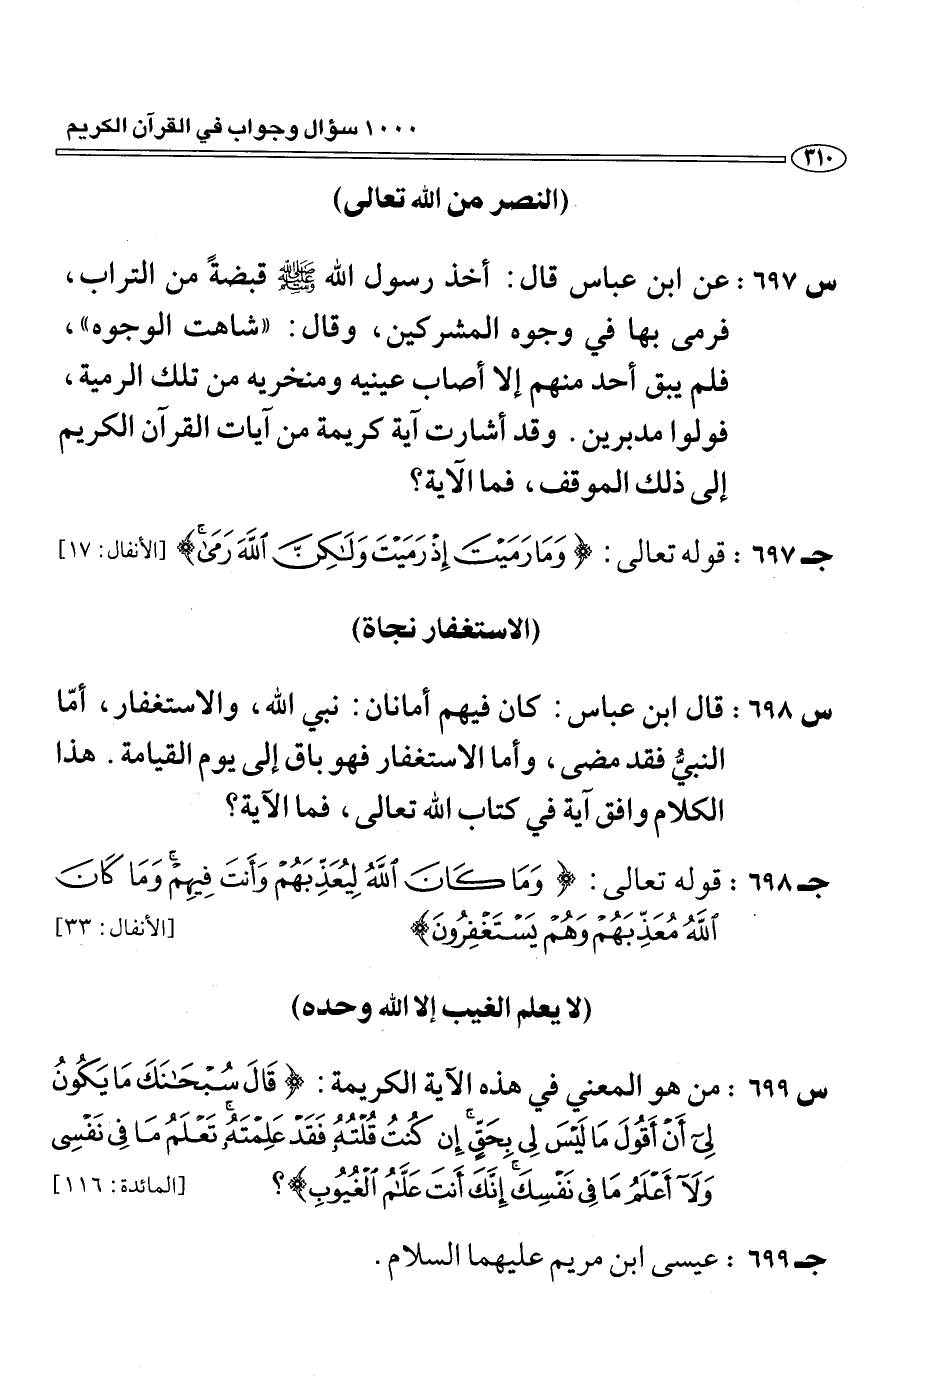 ١٠٠٠ سؤال وجواب في القرآن الكريم
٣١٠
(النصر من الله تعالى)
س ٦٩٧ : عن ابن عباس قال: أخذ رسول الله ﷺ قبضةً من التراب،
فرمى بها في وجوه المشركين، وقال: «شاهت الوجوه»،
فلم يبق أحد منهم إلا أصاب عينيه ومنخريه من تلك الرمية،
فولوا مدبرين. وقد أشارت آية كريمة من آيات القرآن الكريم
إلى ذلك الموقف، فما الآية؟
جـ ٦٩٧ : قوله تعالى: ﴿ وَمَا رَمَيْتَ إِذْ رَمَيْتَ وَلَٰكِنَّ ٱللَّهَ رَمَىٰ ۚ﴾ [الأنفال: ١٧]
(الاستغفار نجاة)
س ٦٩٨ : قال ابن عباس: كان فيهم أمانان: نبي الله، والاستغفار، أمّا
النبيُّ فقد مضى، وأما الاستغفار فهو باق إلى يوم القيامة. هذا
الكلام وافق آية في كتاب الله تعالى، فما الآية؟
جـ ٦٩٨ : قوله تعالى: ﴿ وَمَا كَانَ ٱللَّهُ لِيُعَذِّبَهُمْ وَأَنتَ فِيهِمْ ۚ وَمَا كَانَ
ٱللَّهُ مُعَذِّبَهُمْ وَهُمْ يَسْتَغْفِرُونَ﴾ [الأنفال: ٣٣]
(لا يعلم الغيب إلا الله وحده)
س ٦٩٩ : من هو المعني في هذه الآية الكريمة: ﴿ قَالَ سُبْحَٰنَكَ مَا يَكُونُ
لِىٓ أَنْ أَقُولَ مَا لَيْسَ لِى بِحَقٍّ ۚ إِن كُنتُ قُلْتُهُۥ فَقَدْ عَلِمْتَهُۥ ۚ تَعْلَمُ مَا فِى نَفْسِى
وَلَآ أَعْلَمُ مَا فِى نَفْسِكَ ۚ إِنَّكَ أَنتَ عَلَّٰمُ ٱلْغُيُوبِ﴾؟ [المائدة: ١١٦]
جـ ٦٩٩ : عيسى ابن مريم عليهما السلام.